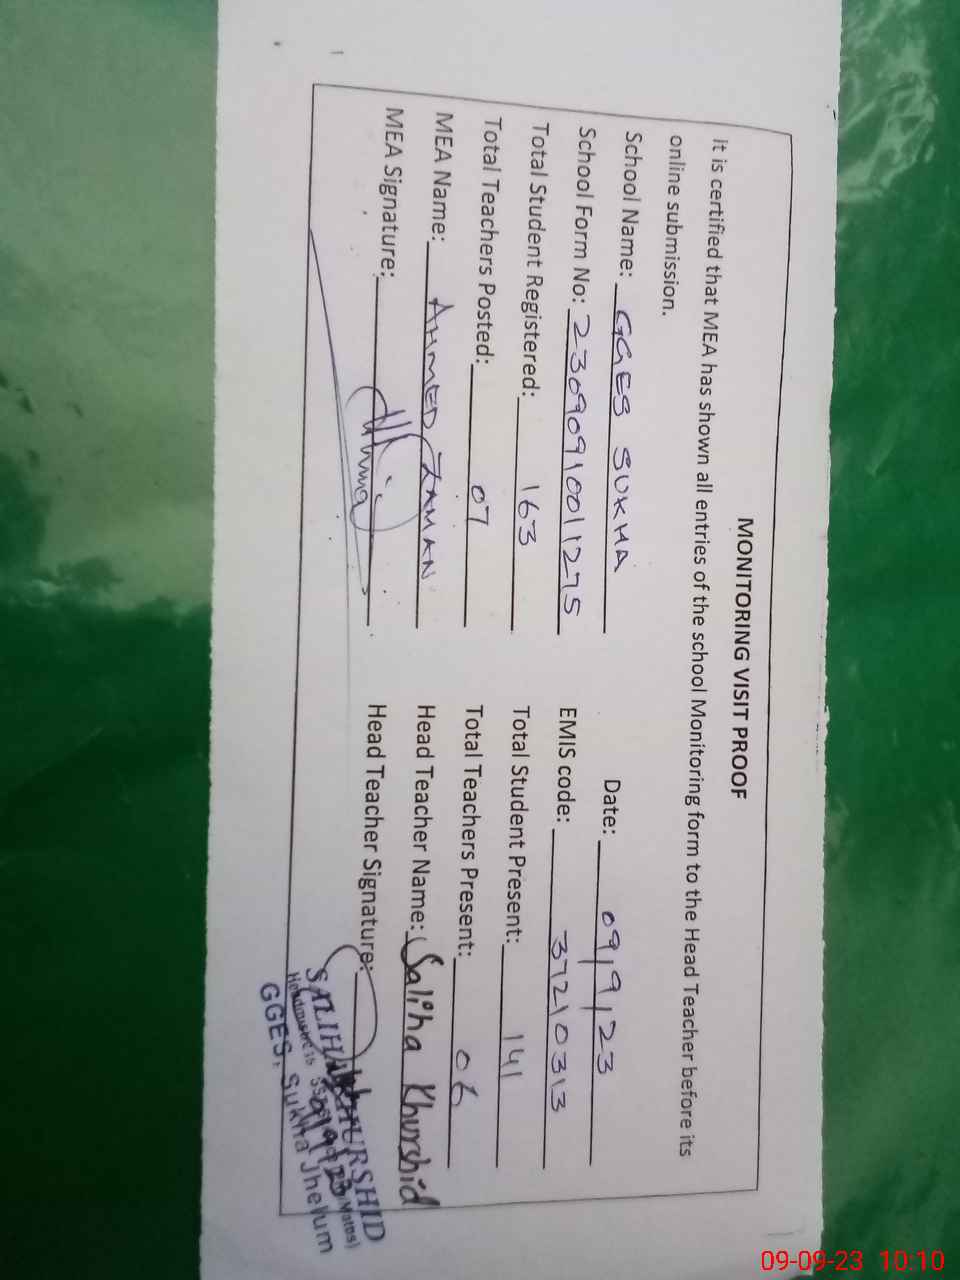 MONITORING VISIT PROOF
It is certified that MEA has shown all entries of the school Monitoring form to the Head Teacher before its
online submission.
School Name: GGES SUKHA Date: 09/9/23
School Form No: 2309091001275 EMIS code: 37210313
Total Student Registered: 163 Total Student Present: 141
Total Teachers Posted: 07 Total Teachers Present: 06
MEA Name: AHMED ZAMAN Head Teacher Name: Saliha Khurshid
MEA Signature: Head Teacher Signature:
SALIHA KHURSHID
Headmistress
GGES, Sukha Jhelum
09-09-23 10:10